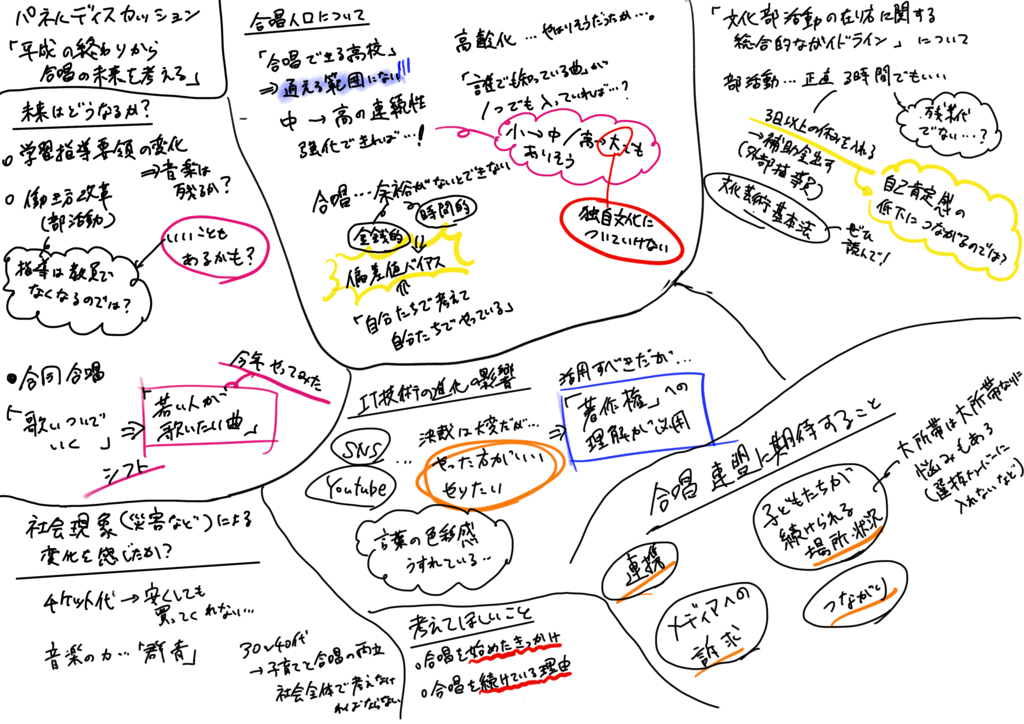 パネルディスカッション
「平成の終わりから
合唱の未来を考える」
未来はどうなるか?
学習指導要領の変化
⇒音楽は
残るか?
働き方改革
(部活動)
指導は教員で
なくなるのでは?
いいことも
あるかも?
合同合唱
「歌いついで
いく」
⇒
「若い人が
歌いたい曲」
今年やってみた
シフト
合唱人口について
「合唱できる高校」
⇒通える範囲にない!!!
中→高の連続性
強化できれば…!
高齢化…やはりそうだったか…。
「誰でも知っている曲」が
1つでも入っていれば…?
小→中/高→大でも
ありそう
独自文化に
ついていけない
合唱…余裕がないとできない
金銭的
時間的
偏差値バイアス
「自分たちで考えて
自分たちでやっている」
「文化部活動の在り方に関する
総合的なガイドライン」について
部活動…正直3時間でもいい
残業代
でない…?
3日以上の休みを入れる
→補助金出す
(外部指導員)
自己肯定感の
低下につながるのでは?
文化芸術基本法
ぜひ
読んで!
IT技術の進化の影響
SNS
Youtube
…
決裁は大変だが…
やった方がいい
やりたい
⇒
活用すべきだが…
「著作権」への
理解が必用
言葉の色彩感
うすれている…
合唱連盟に期待すること
連携
子どもたちが
続けられる
場所・状況
メディアへの
訴求
つながり
大所帯は大所帯なりに
悩みもある
(選抜メンバーに
入れないなど)
社会現象(災害など)による
変化を感じたか?
チケット代→安くしても
買ってくれない…
音楽の力…「群青」
30〜40代
→子育てと合唱の両立
社会全体で考えなけ
ればならない
考えてほしいこと
合唱を始めたきっかけ
合唱を続けている理由